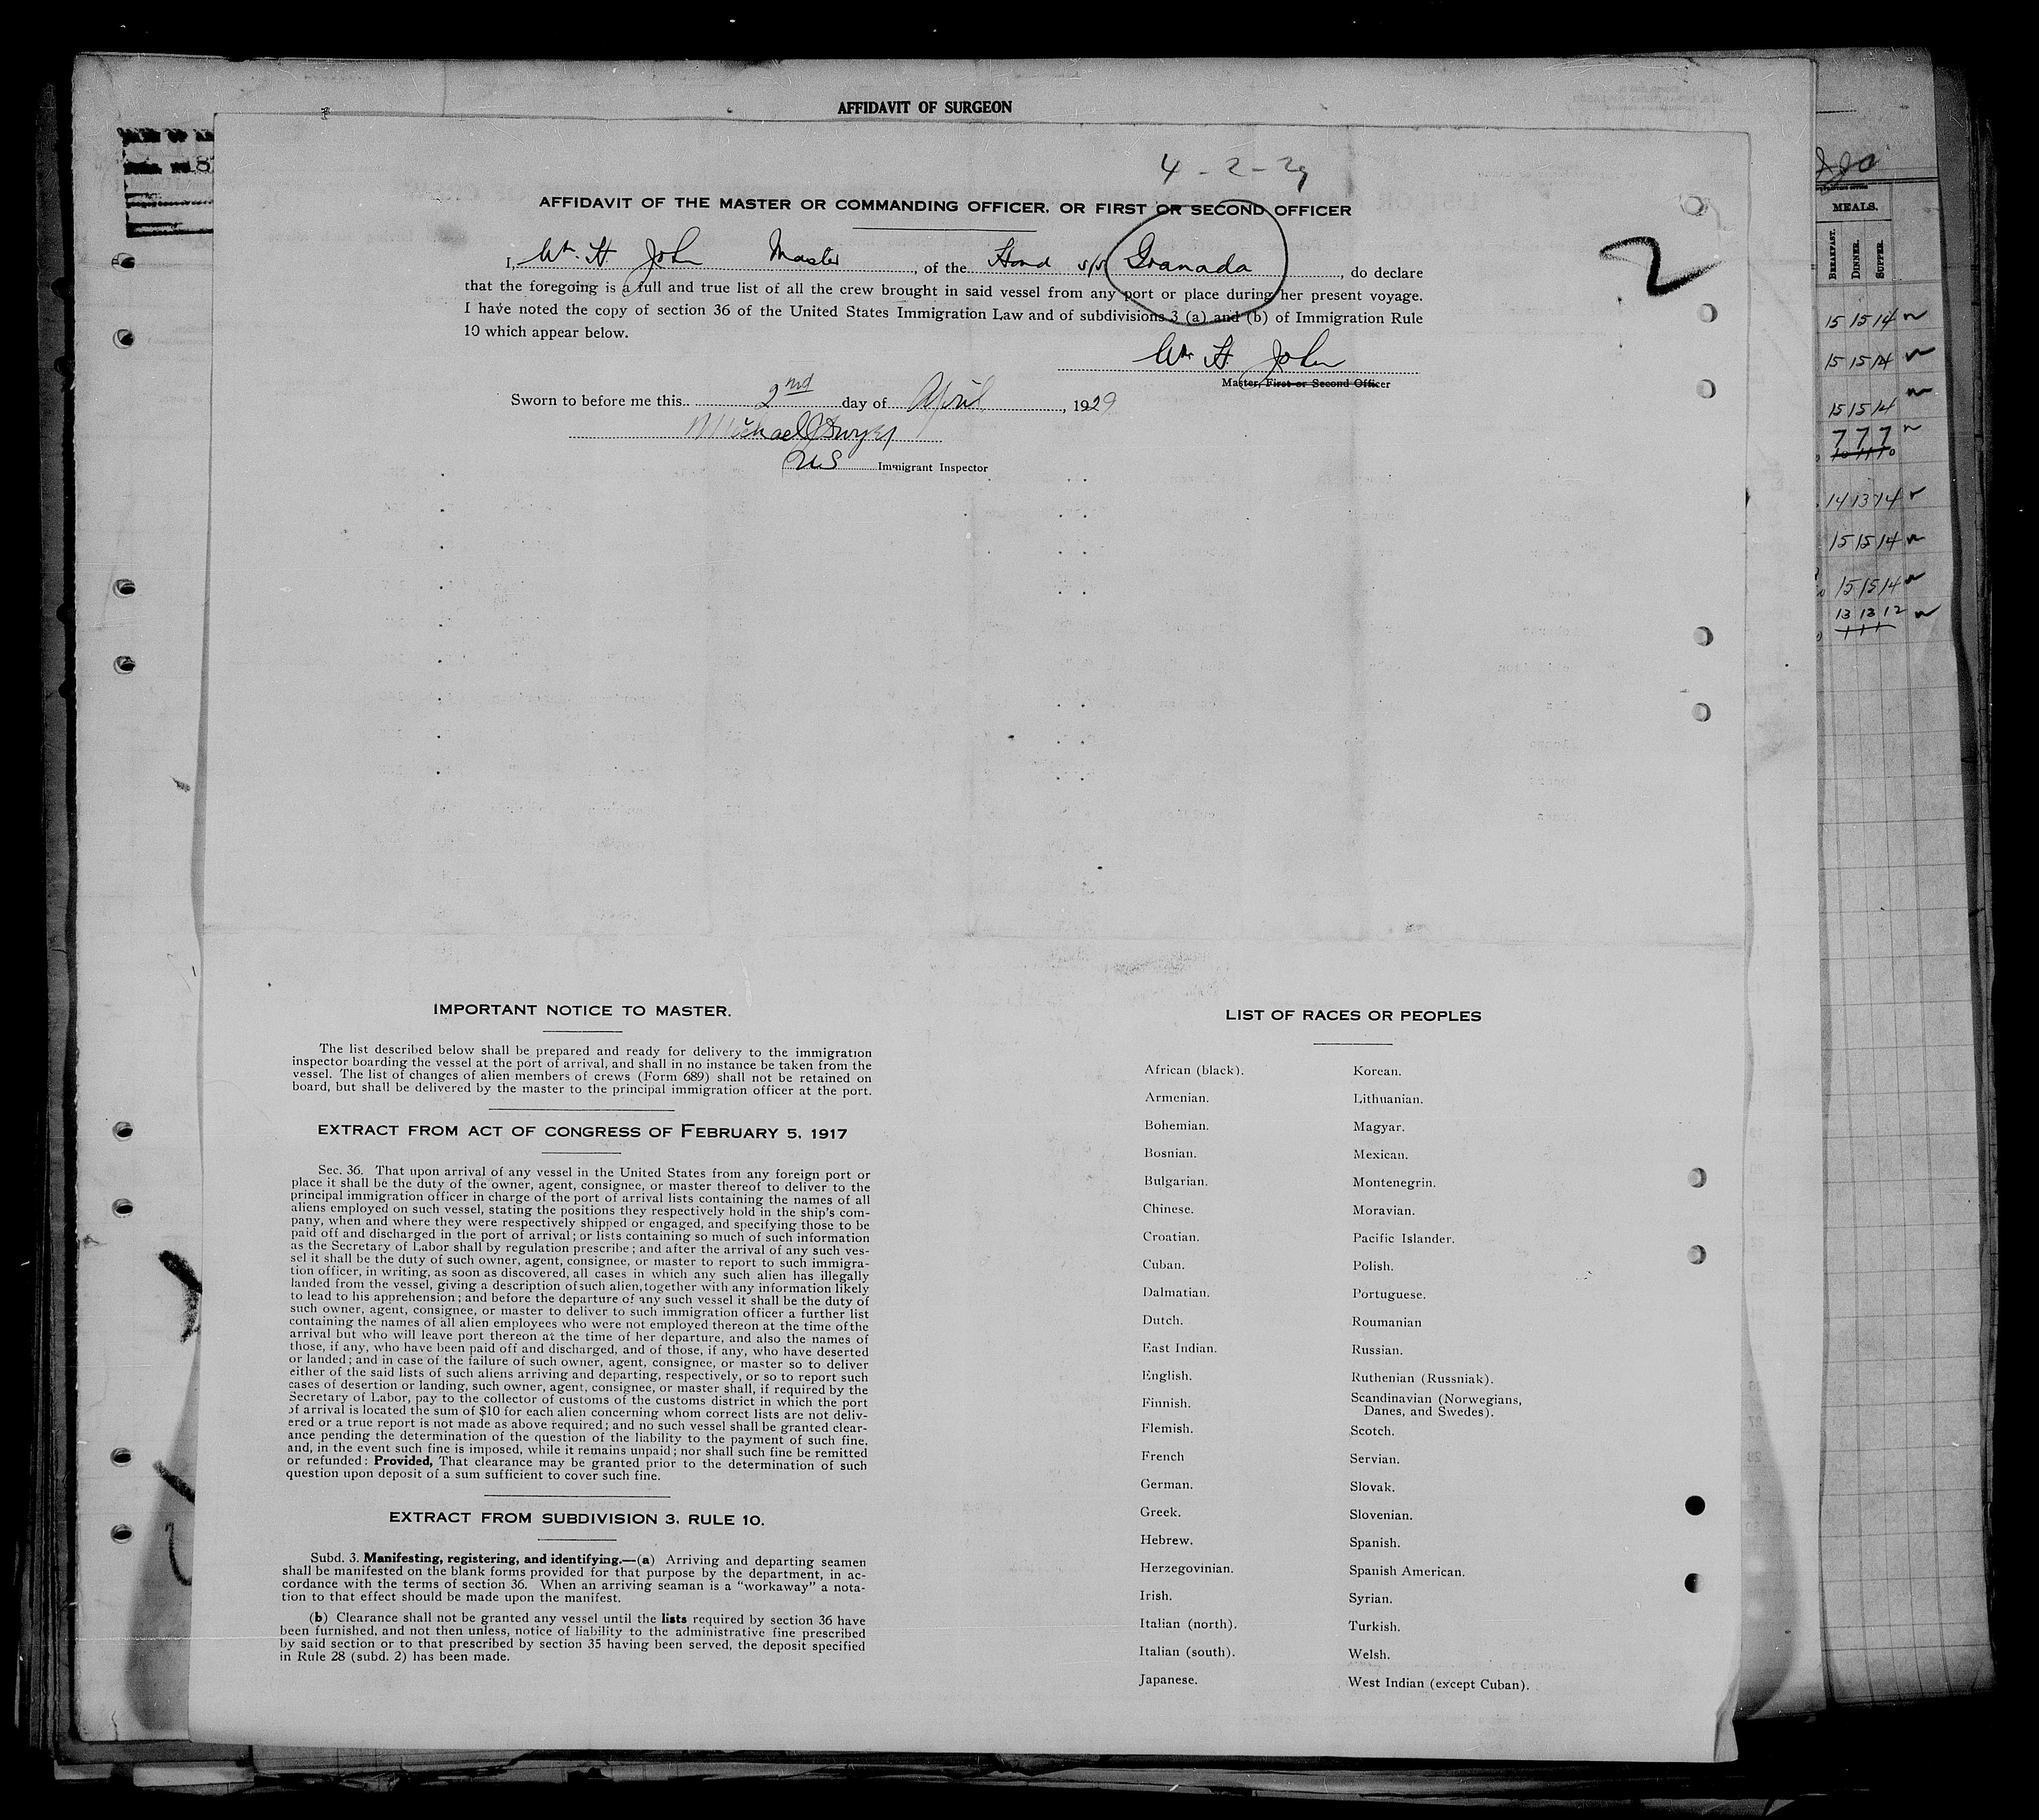 AFFIDAVIT OF SURGEON
4 - 2 - 29
AFFIDAVIT OF THE MASTER OR COMMANDING OFFICER, OR FIRST OR SECOND OFFICER
I, Wm. H. John Master, of the Hond s/s Granada, do declare
that the foregoing is a full and true list of all the crew brought in said vessel from any port or place during her present voyage.
I have noted the copy of section 36 of the United States Immigration Law and of subdivisions 3 (a) and (b) of Immigration Rule
10 which appear below.
Wm H. John
Master, First or Second Officer
Sworn to before me this 2nd day of April, 1929
Michael J Dwyer
US Immigrant Inspector
2
MEALS.
BREAKFAST.
DINNER.
SUPPER.
15 15 14
15 15 14
15 15 14
7 7 7
10 11 10
14 13 14
15 15 14
15 15 14
13 13 12
1 1 1
IMPORTANT NOTICE TO MASTER.
The list described below shall be prepared and ready for delivery to the immigration
inspector boarding the vessel at the port of arrival, and shall in no instance be taken from the
vessel. The list of changes of alien members of crews (Form 689) shall not be retained on
board, but shall be delivered by the master to the principal immigration officer at the port.
EXTRACT FROM ACT OF CONGRESS OF FEBRUARY 5, 1917
Sec. 36. That upon arrival of any vessel in the United States from any foreign port or
place it shall be the duty of the owner, agent, consignee, or master thereof to deliver to the
principal immigration officer in charge of the port of arrival lists containing the names of all
aliens employed on such vessel, stating the positions they respectively hold in the ship's com-
pany, when and where they were respectively shipped or engaged, and specifying those to be
paid off and discharged in the port of arrival; or lists containing so much of such information
as the Secretary of Labor shall by regulation prescribe; and after the arrival of any such ves-
sel it shall be the duty of such owner, agent, consignee, or master to report to such immigra-
tion officer, in writing, as soon as discovered, all cases in which any such alien has illegally
landed from the vessel, giving a description of such alien, together with any information likely
to lead to his apprehension; and before the departure of any such vessel it shall be the duty of
such owner, agent, consignee, or master to deliver to such immigration officer a further list
containing the names of all alien employees who were not employed thereon at the time of the
arrival but who will leave port thereon at the time of her departure, and also the names of
those, if any, who have been paid off and discharged, and of those, if any, who have deserted
or landed; and in case of the failure of such owner, agent, consignee, or master so to deliver
either of the said lists of such aliens arriving and departing, respectively, or so to report such
cases of desertion or landing, such owner, agent, consignee, or master shall, if required by the
Secretary of Labor, pay to the collector of customs of the customs district in which the port
of arrival is located the sum of $10 for each alien concerning whom correct lists are not deliv-
ered or a true report is not made as above required; and no such vessel shall be granted clear-
ance pending the determination of the question of the liability to the payment of such fine,
and, in the event such fine is imposed, while it remains unpaid; nor shall such fine be remitted
or refunded: Provided, That clearance may be granted prior to the determination of such
question upon deposit of a sum sufficient to cover such fine.
EXTRACT FROM SUBDIVISION 3, RULE 10.
Subd. 3. Manifesting, registering, and identifying.—(a) Arriving and departing seamen
shall be manifested on the blank forms provided for that purpose by the department, in ac-
cordance with the terms of section 36. When an arriving seaman is a "workaway" a nota-
tion to that effect should be made upon the manifest.
(b) Clearance shall not be granted any vessel until the lists required by section 36 have
been furnished, and not then unless, notice of liability to the administrative fine prescribed
by said section or to that prescribed by section 35 having been served, the deposit specified
in Rule 28 (subd. 2) has been made.
LIST OF RACES OR PEOPLES
African (black).
Armenian.
Bohemian.
Bosnian.
Bulgarian.
Chinese.
Croatian.
Cuban.
Dalmatian.
Dutch.
East Indian.
English.
Finnish.
Flemish.
French
German.
Greek.
Hebrew.
Herzegovinian.
Irish.
Italian (north).
Italian (south).
Japanese.
Korean.
Lithuanian.
Magyar.
Mexican.
Montenegrin.
Moravian.
Pacific Islander.
Polish.
Portuguese.
Roumanian
Russian.
Ruthenian (Russniak).
Scandinavian (Norwegians,
Danes, and Swedes).
Scotch.
Servian.
Slovak.
Slovenian.
Spanish.
Spanish American.
Syrian.
Turkish.
Welsh.
West Indian (except Cuban).